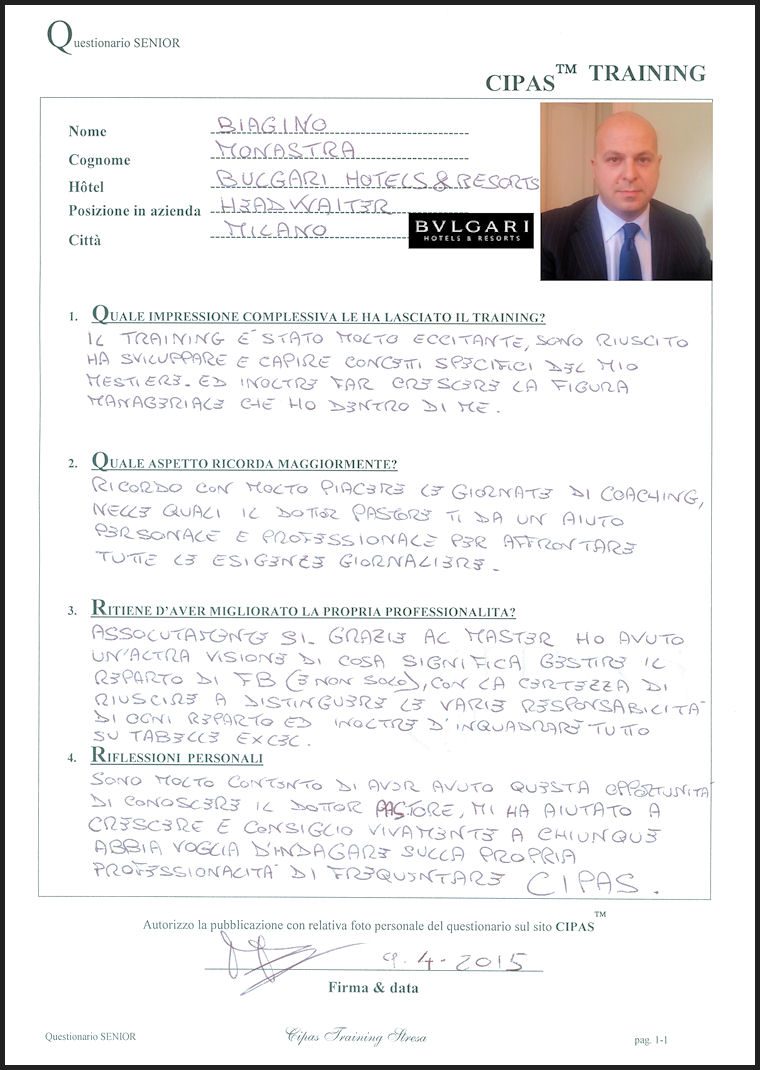 Questionario SENIOR
CIPAS™ TRAINING
Nome BIAGINO
Cognome MONASTRA
Hôtel BULGARI HOTELS & RESORTS
Posizione in azienda HEADWAITER
Città MILANO
BVLGARI
HOTELS & RESORTS
1. QUALE IMPRESSIONE COMPLESSIVA LE HA LASCIATO IL TRAINING?
IL TRAINING E' STATO MOLTO ECCITANTE, SONO RIUSCITO
HA SVILUPPARE E CAPIRE CONCETTI SPECIFICI DEL MIO
MESTIERE. ED INOLTRE FAR CRESCERE LA FIGURA
MANAGERIALE CHE HO DENTRO DI ME.
2. QUALE ASPETTO RICORDA MAGGIORMENTE?
RICORDO CON MOLTO PIACERE LE GIORNATE DI COACHING,
NELLE QUALI IL DOTTOR PASTORE TI DA UN AIUTO
PERSONALE E PROFESSIONALE PER AFFRONTARE
TUTTE LE ESIGENZE GIORNALIERE.
3. RITIENE D'AVER MIGLIORATO LA PROPRIA PROFESSIONALITA?
ASSOLUTAMENTE SI. GRAZIE AL MASTER HO AVUTO
UN'ALTRA VISIONE DI COSA SIGNIFICA GESTIRE IL
REPARTO DI FB (E NON SOLO), CON LA CERTEZZA DI
RIUSCIRE A DISTINGUERE LE VARIE RESPONSABILITA'
DI OGNI REPARTO ED INOLTRE D'INQUADRARE TUTTO
SU TABELLE EXCEL.
4. RIFLESSIONI PERSONALI
SONO MOLTO CONTENTO DI AVER AVUTO QUESTA OPPORTUNITA'
DI CONOSCERE IL DOTTOR PASTORE, MI HA AIUTATO A
CRESCERE E CONSIGLIO VIVAMENTE A CHIUNQUE
ABBIA VOGLIA D'INDAGARE SULLA PROPRIA
PROFESSIONALITA' DI FREQUENTARE CIPAS.
Autorizzo la pubblicazione con relativa foto personale del questionario sul sito CIPAS™
9.4-2015
Firma & data
Questionario SENIOR
Cipas Training Stresa
pag. 1-1